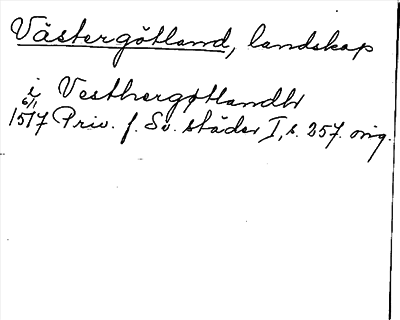 Västergötland, landskap
i Vesthergøtlandh
6/1
1517 Priv. f. Sv. städer I, s. 257. orig.